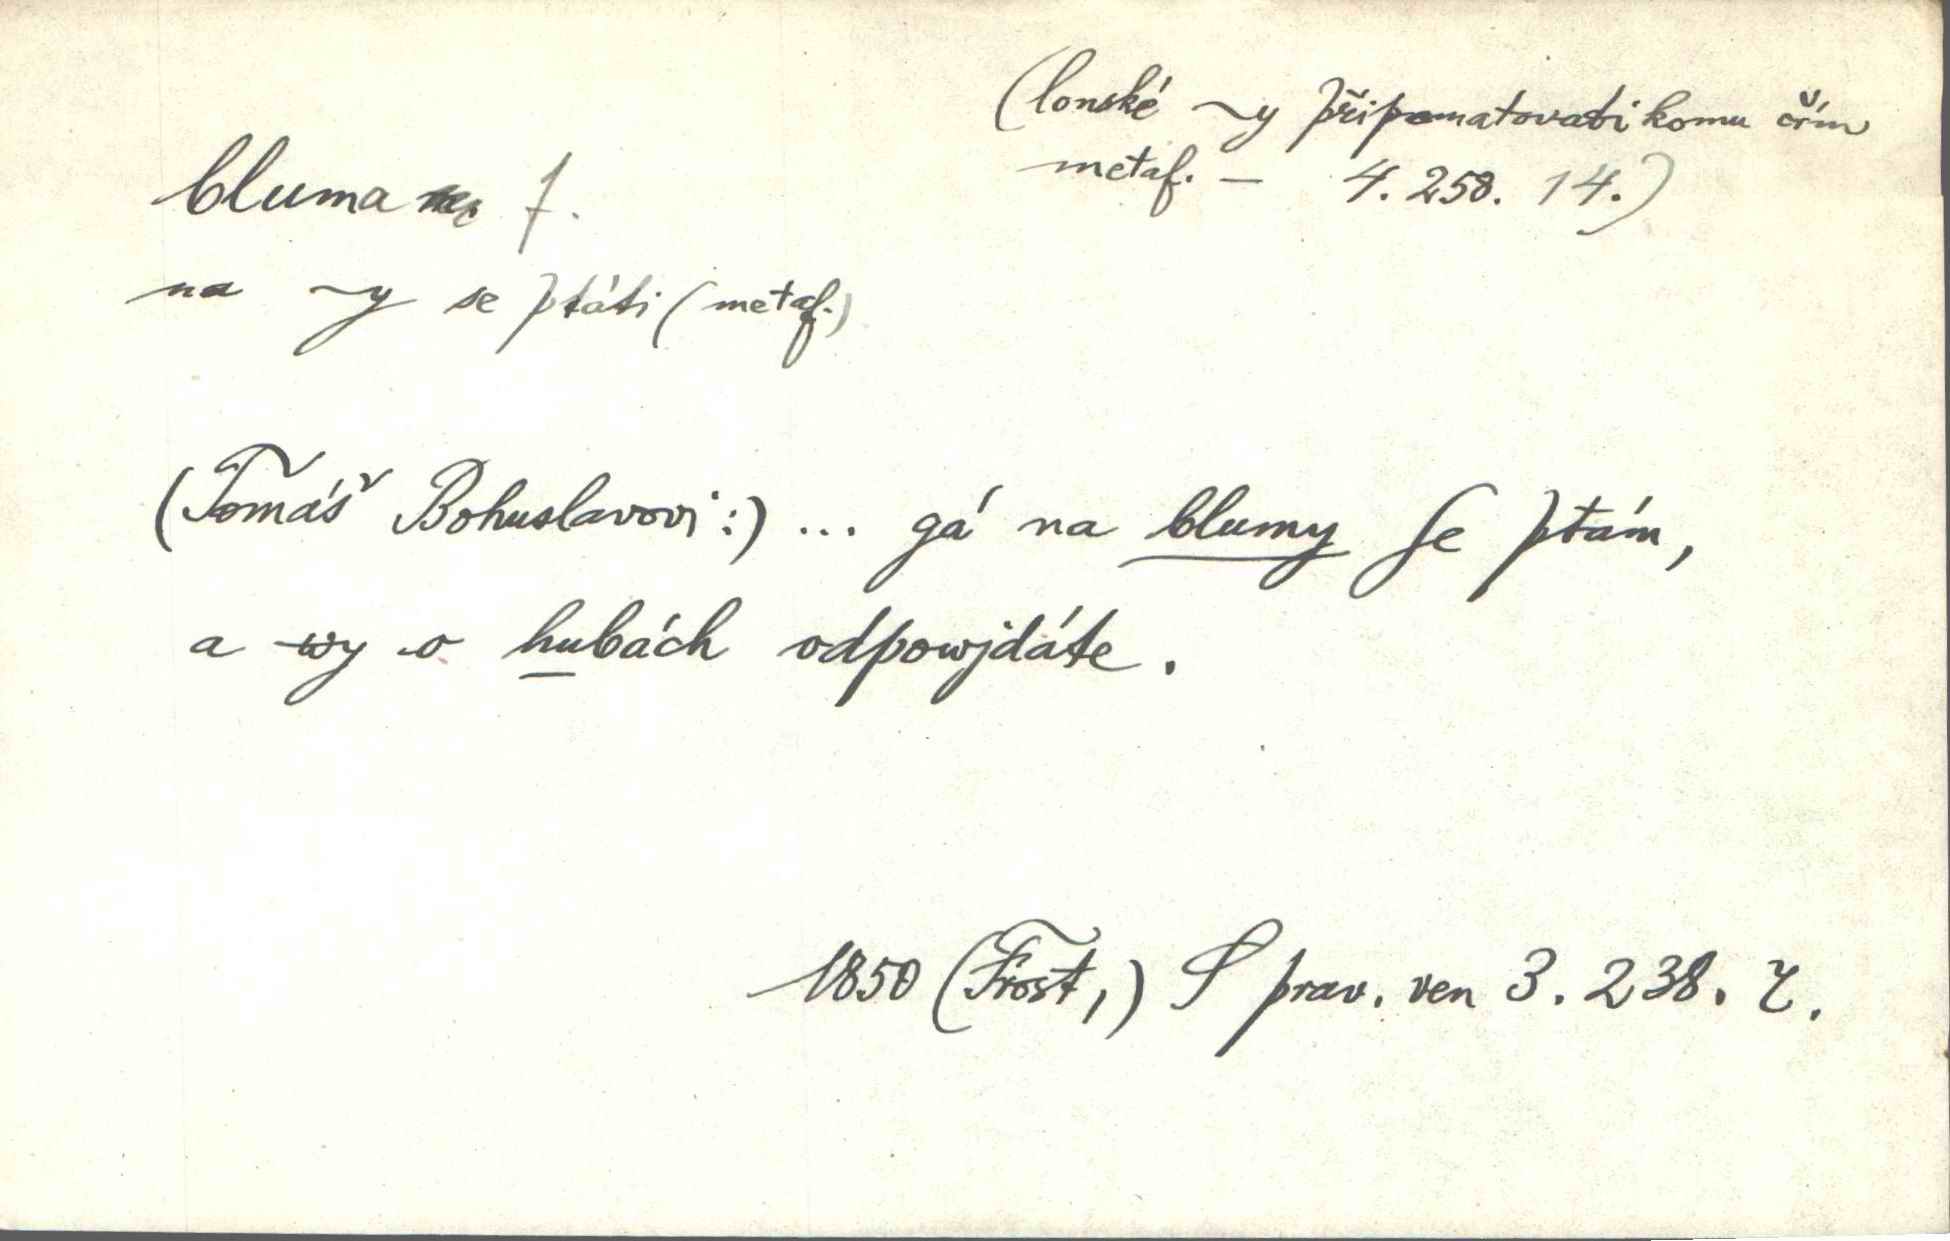 (lonské ~y připamatovati komu čím
metaf. — 4. 258. 14.)
bluma f.
na ~y se ptáti (metaf.)
(Tomáš Bohuslavovi:) ... gá na blumy se ptám,
a wy o hubách odpowjdáte.
1850 (Frost,) S prav. ven 3. 238. 7.